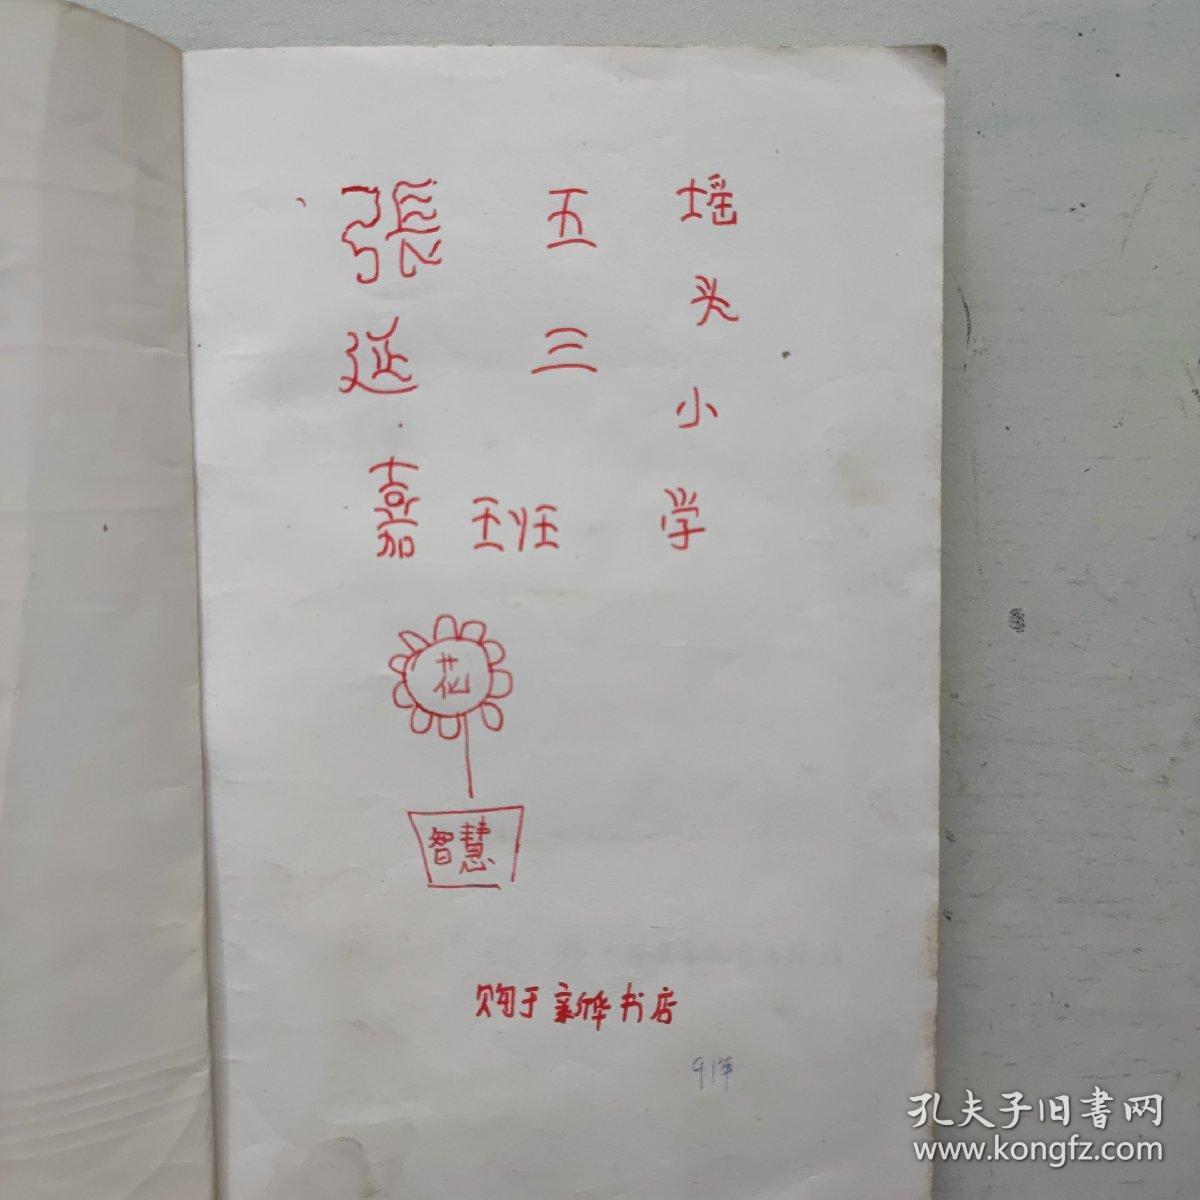 瑶头小学
五三班
張延嘉
花
智慧
购于新华书店
91年
孔夫子旧書网
www.kongfz.com